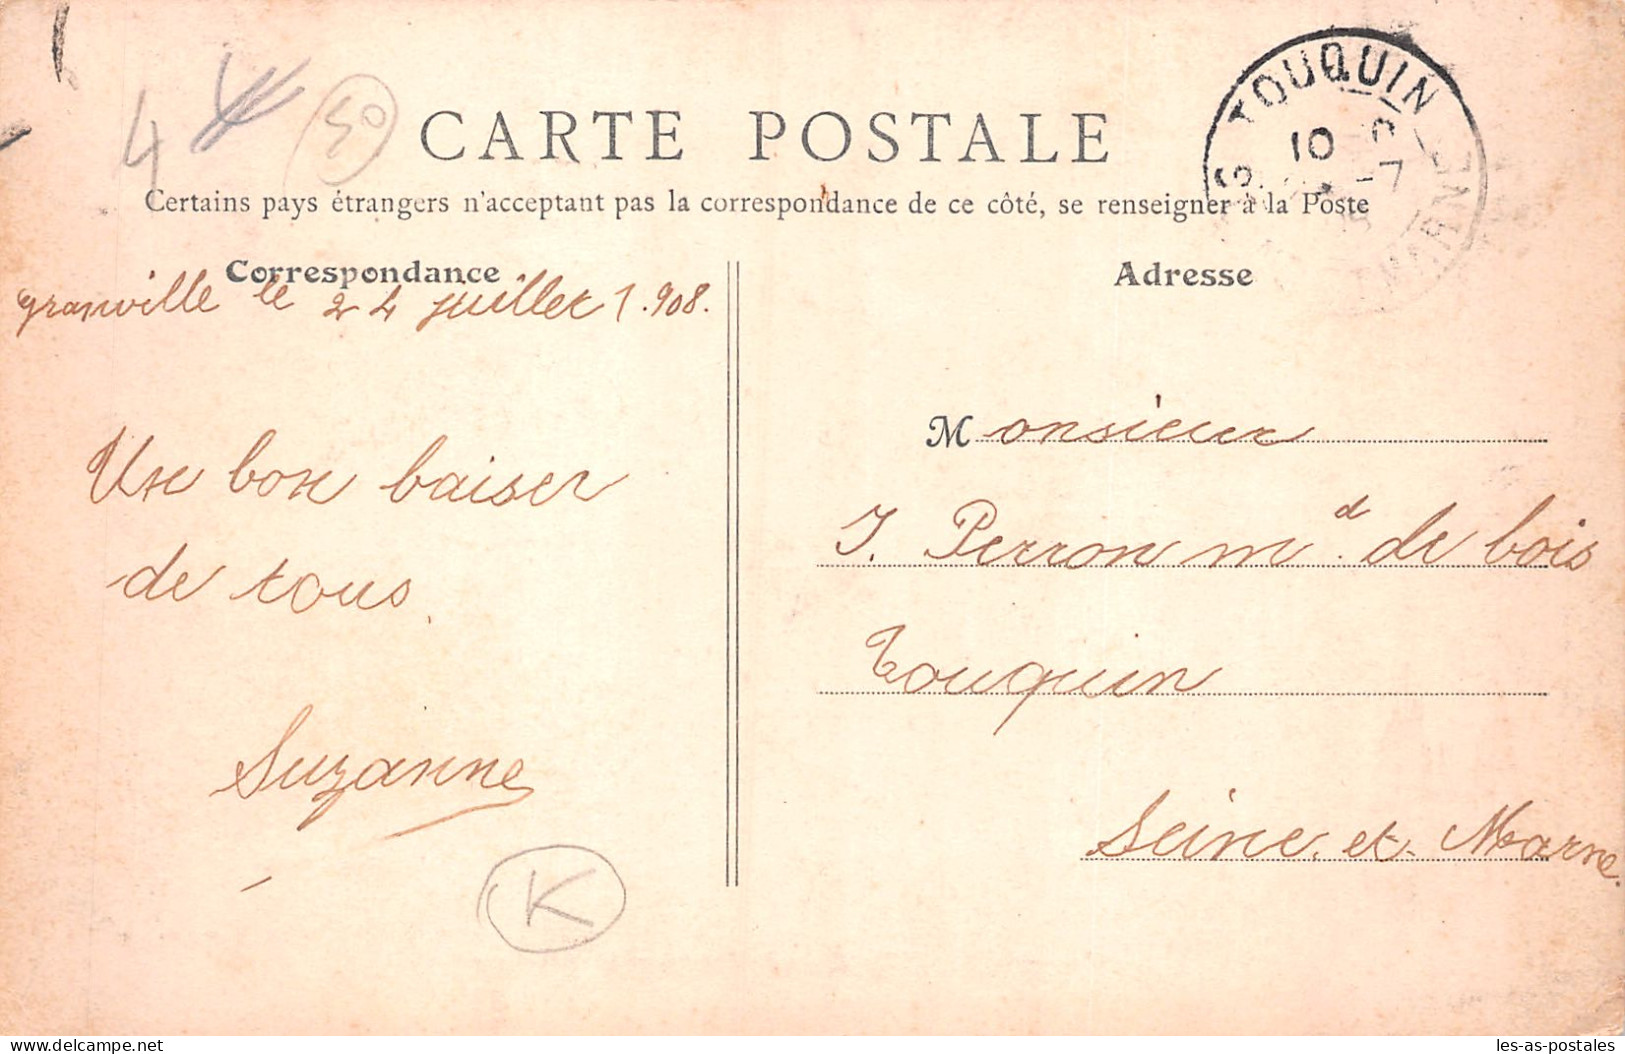 4
50
CARTE POSTALE
TOUQUIN
10
MARNE
Certains pays étrangers n'acceptant pas la correspondance de ce côté, se renseigner à la Poste
Correspondance
granville le 24 juillet 1.908.
Un bon baiser
de tous
Suzanne
K
Adresse
Monsieur
J. Perron md. de bois
Touquin
Seine. et. Marne.
delcampe.net
les-as-postales